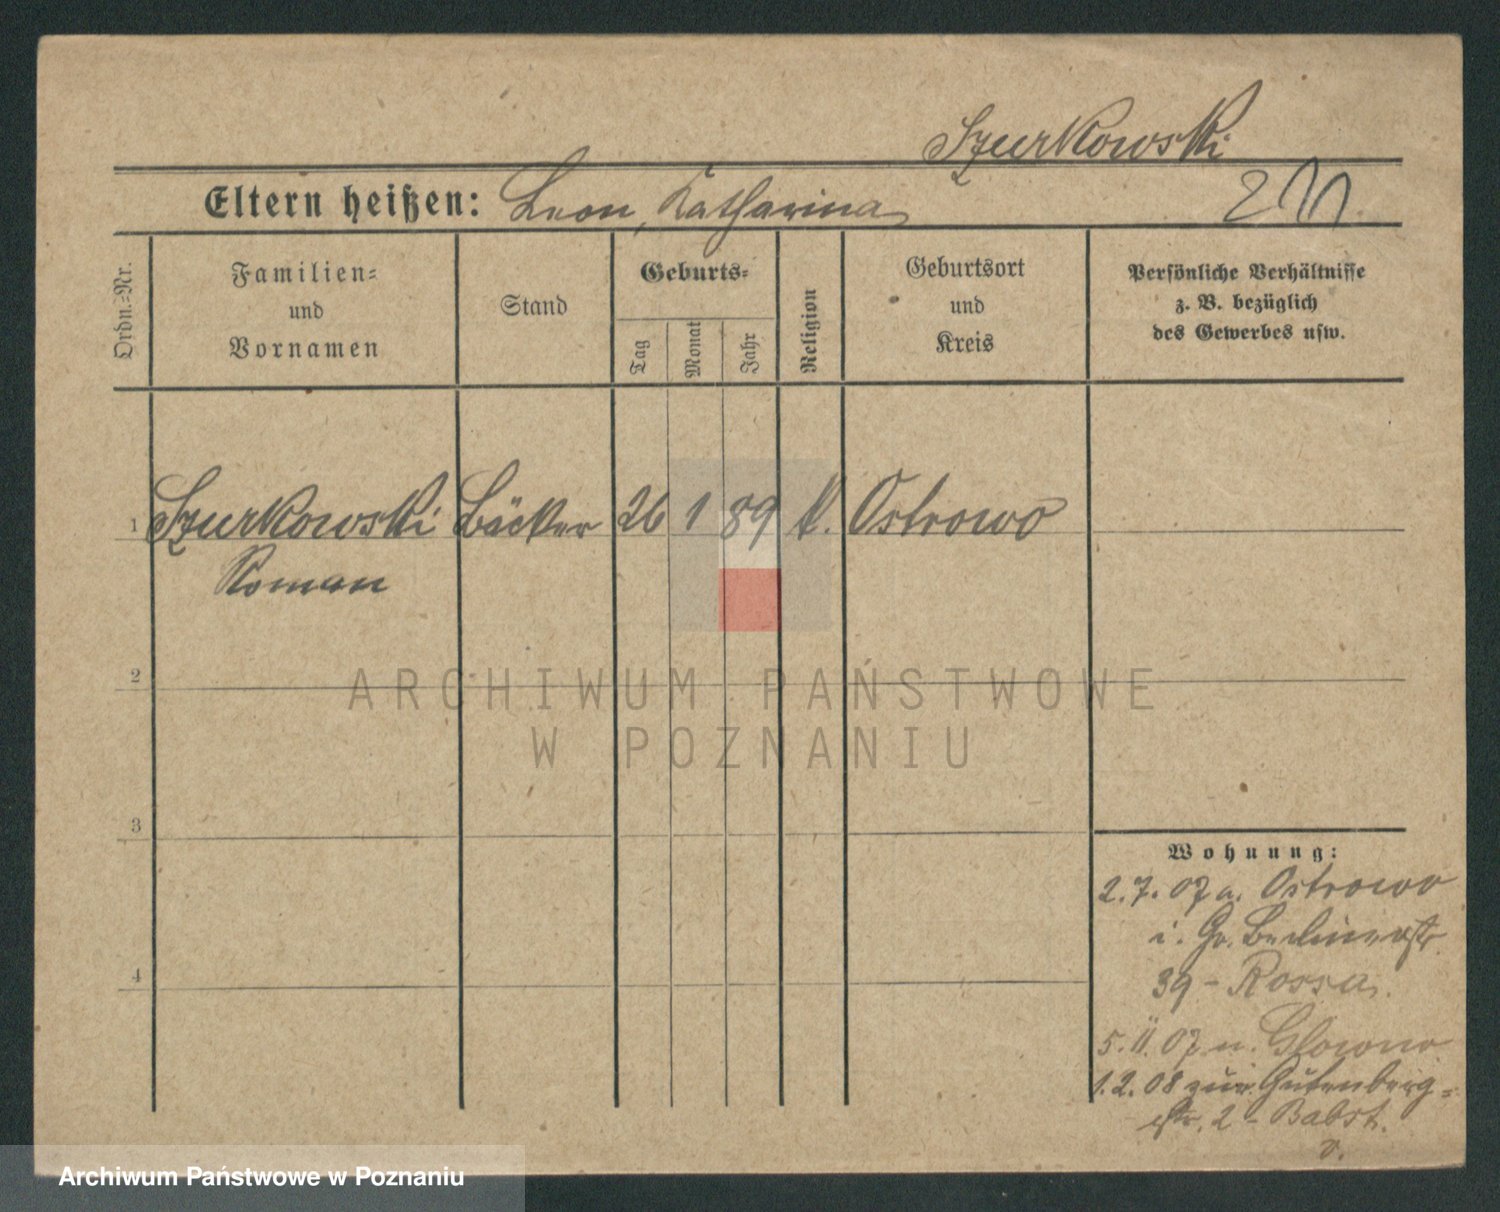 Szurkowski
Eltern heißen: Leon, Katharina
Ordn.=Nr.
Familien=
und
Vornamen
Stand
Geburts=
Tag
Monat
Jahr
Religion
Geburtsort
und
Kreis
Persönliche Verhältnisse
z. B. bezüglich
des Gewerbes usw.
1 Szurkowski Bäcker 26 1 89 k. Ostrowo
Roman
2
3
4
Wohnung:
2.7.07 a. Ostrowo
i. Gr. Berlinerstr.
39 - Rossa.
5.11.07 n. Glowno
1.2.08 Gutenberg=
str. 2 - Babst.
ARCHIWUM PAŃSTWOWE
W POZNANIU
Archiwum Państwowe w Poznaniu